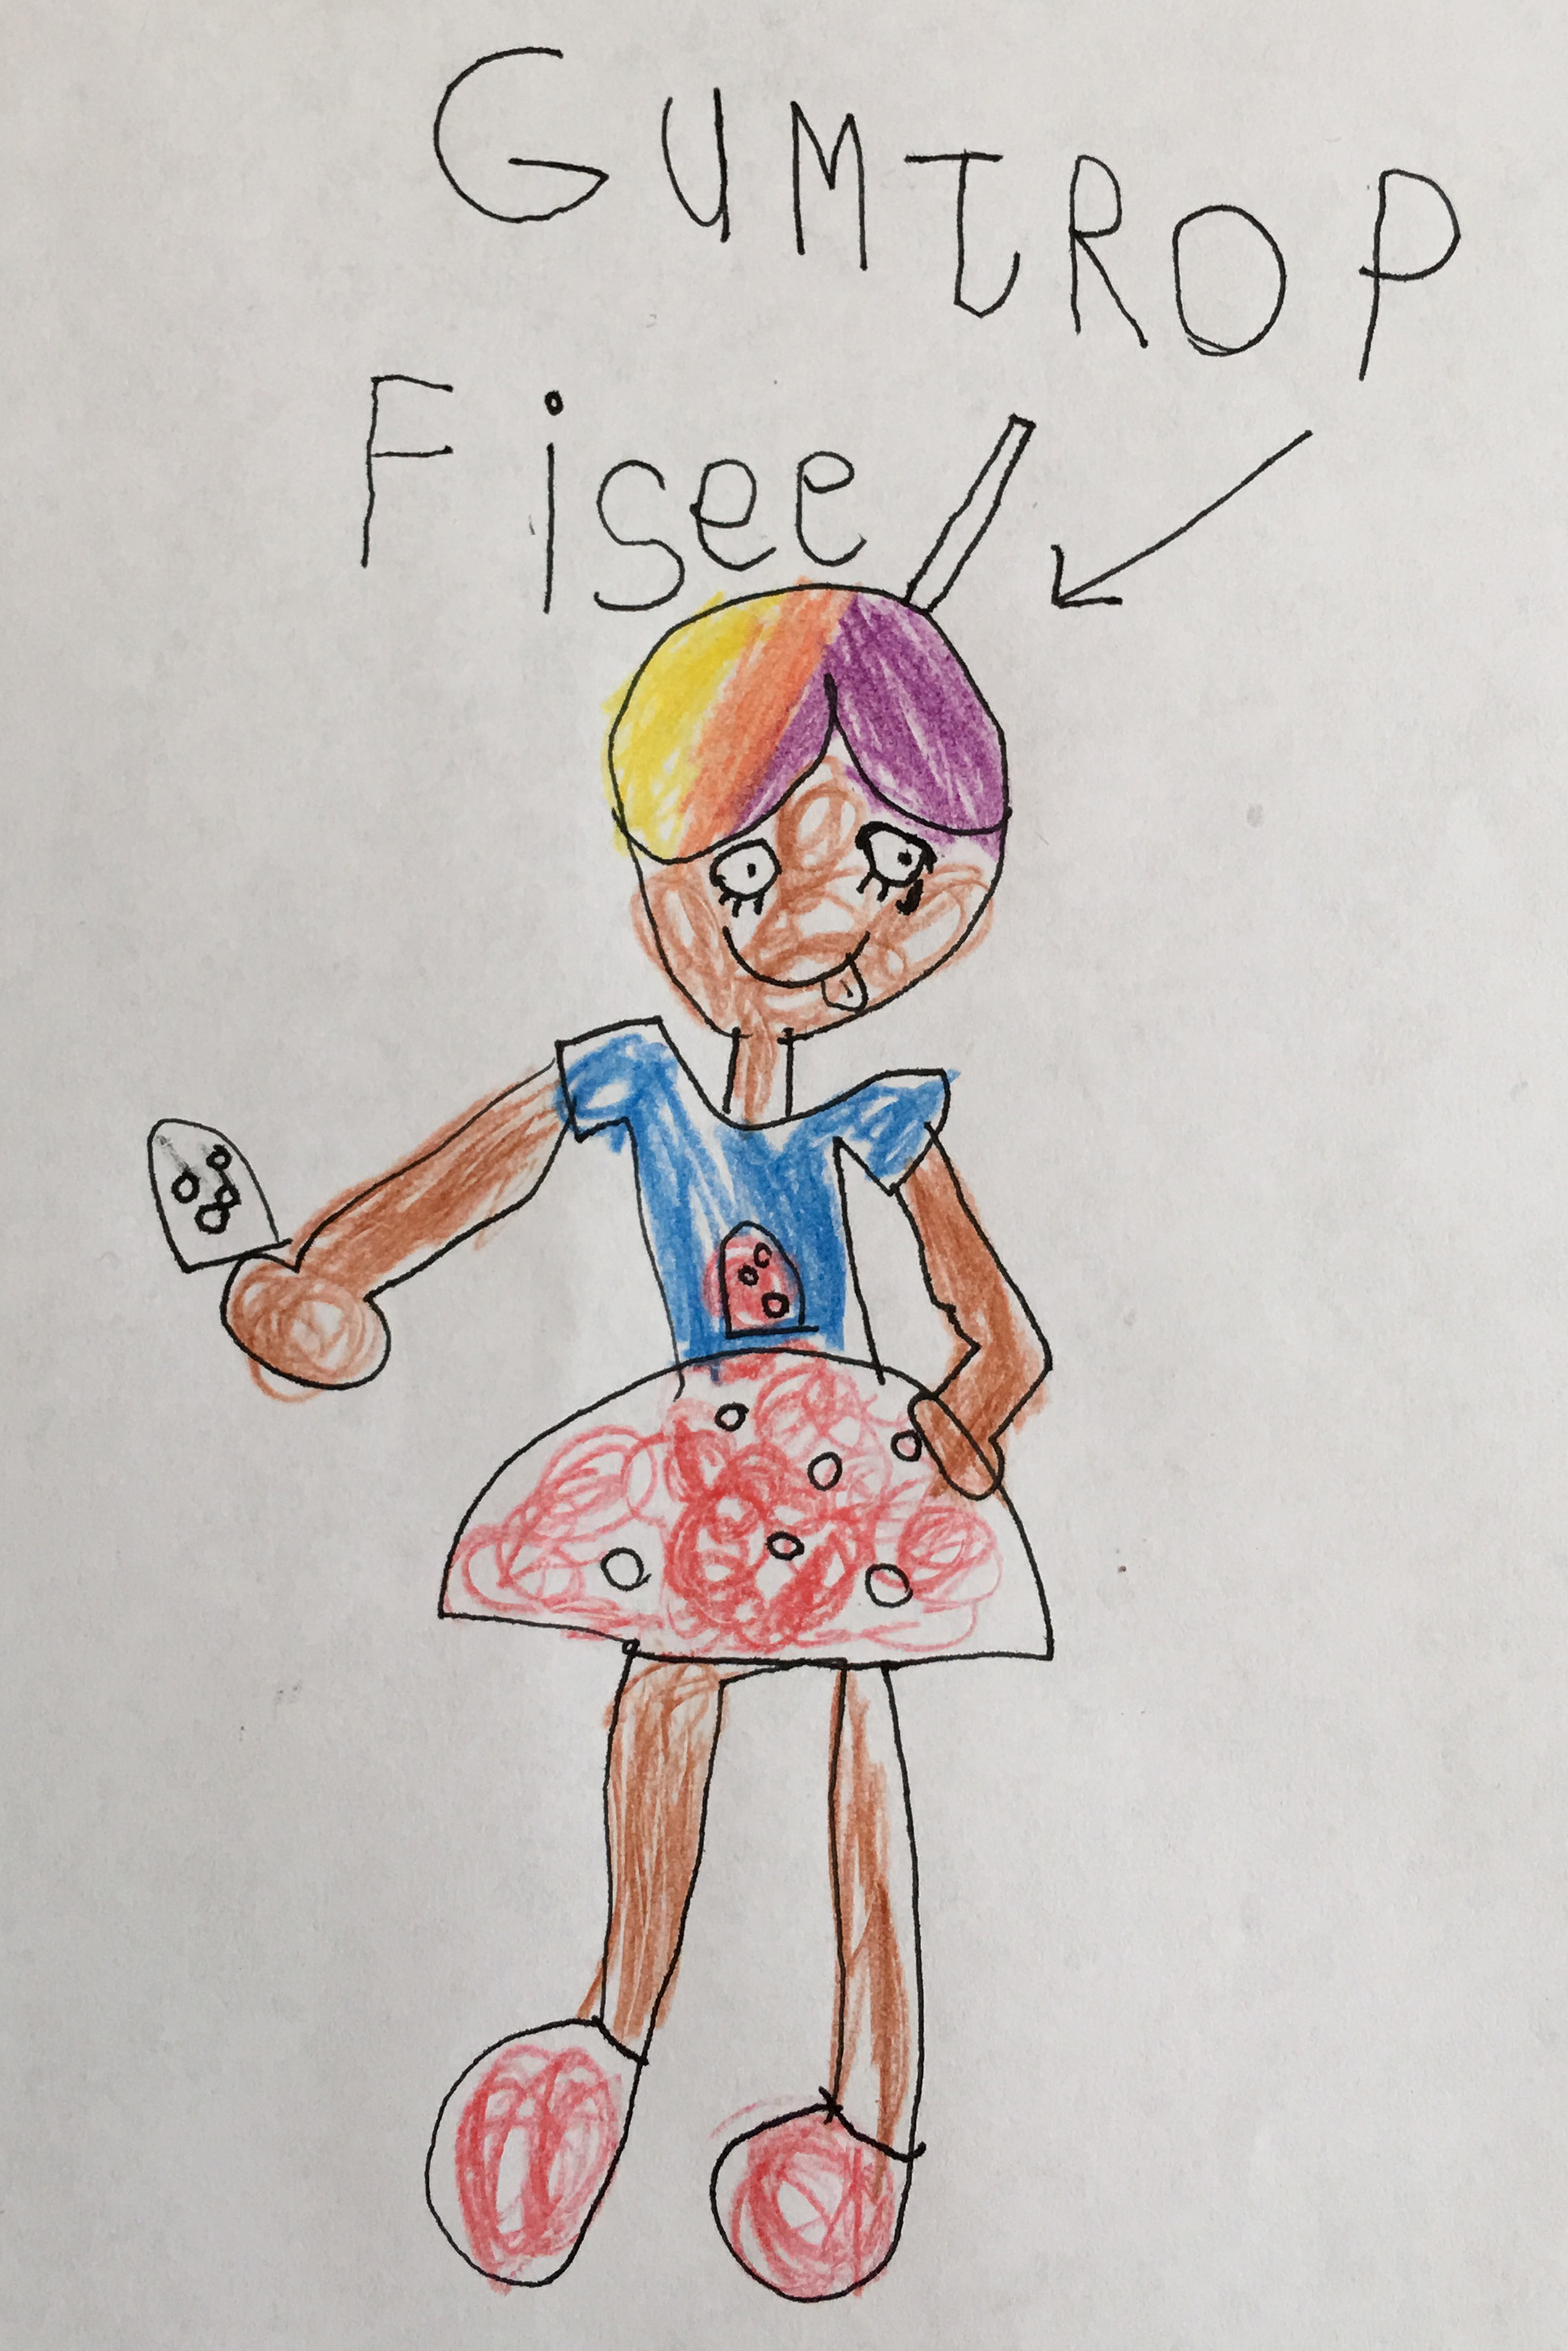 GUMTROP
Fisee